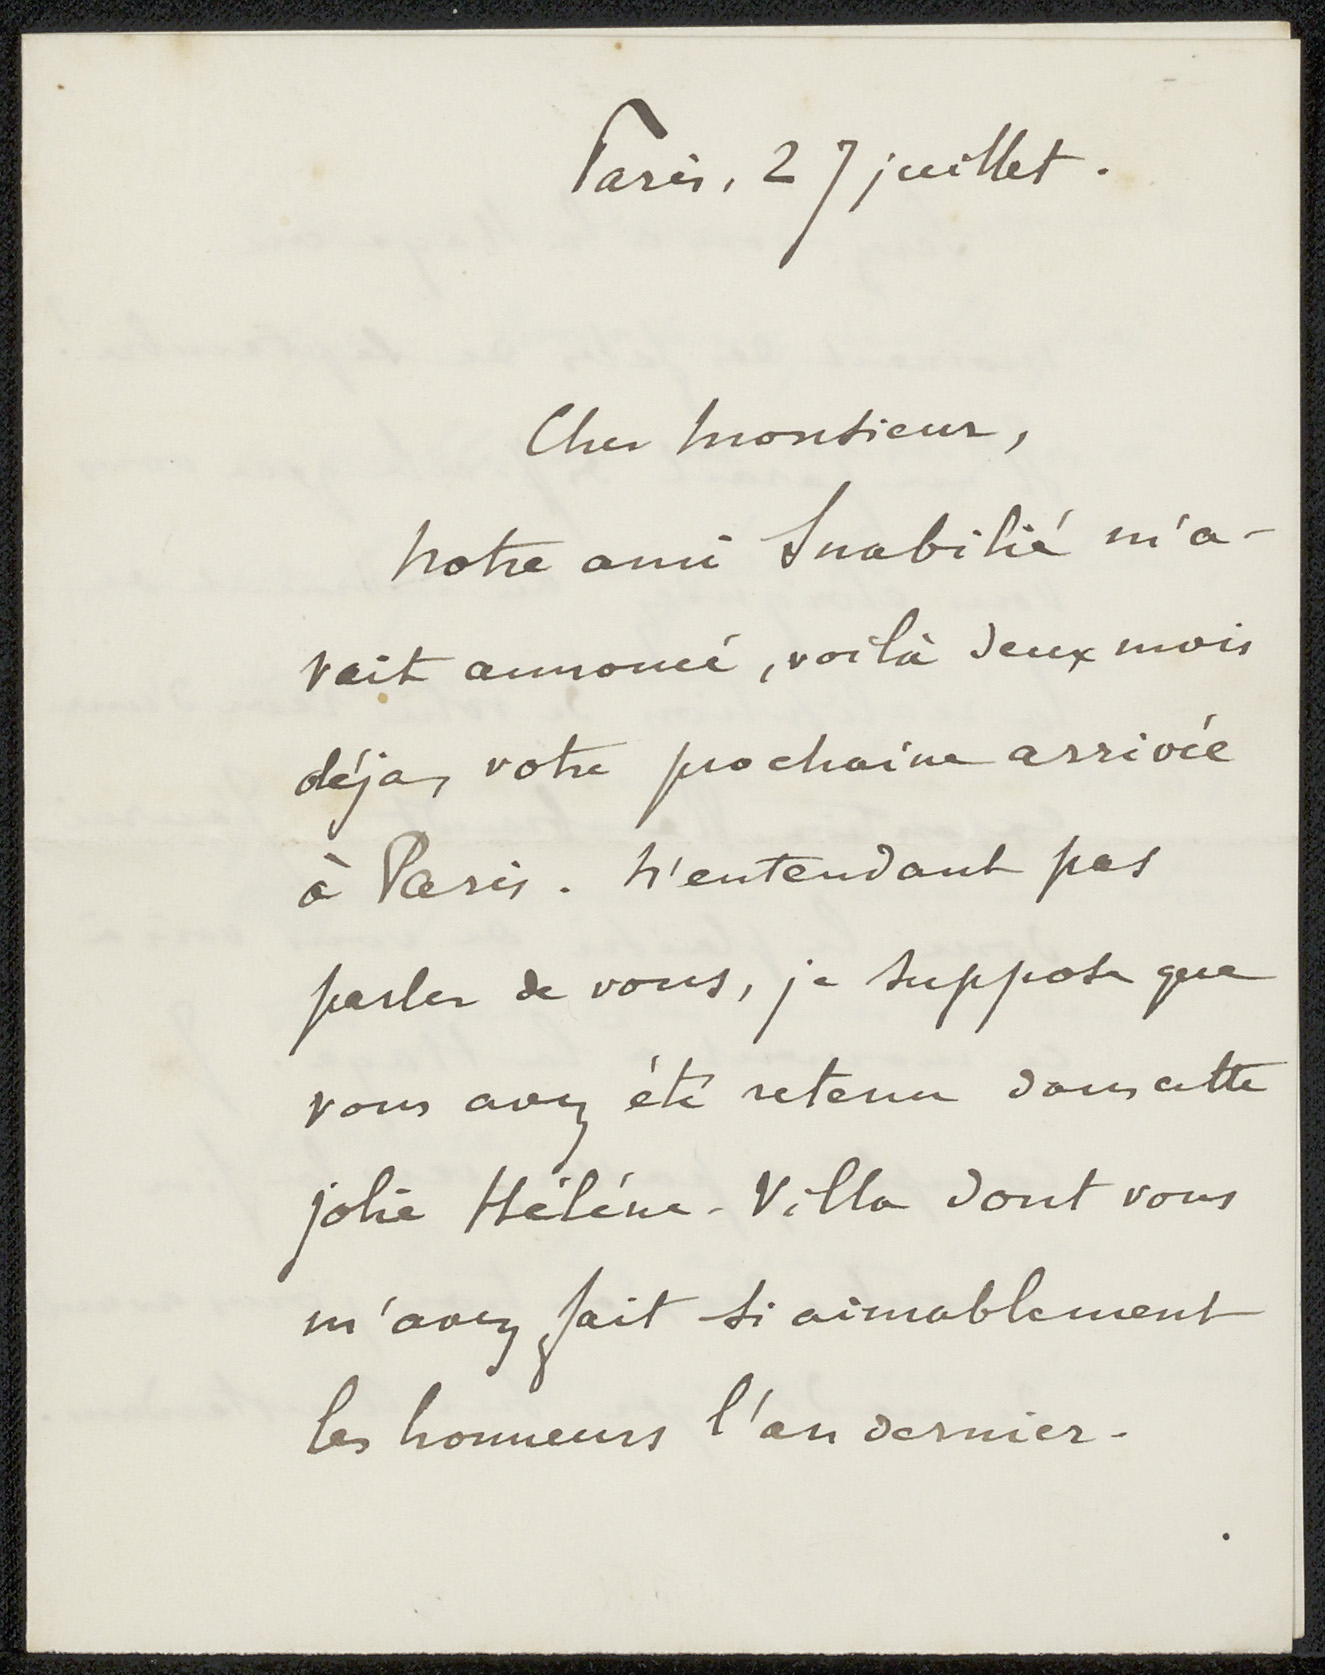 Paris, 27 juillet.
Cher Monsieur,
Notre ami Snabilié m'a-
vait annoncé, voilà deux mois
déjà, votre prochaine arrivée
à Paris. N'entendant pas
parler de vous, je suppose que
vous avez été retenu dans cette
jolie Hélène-Villa dont vous
m'avez fait si aimablement
les honneurs l'an dernier.